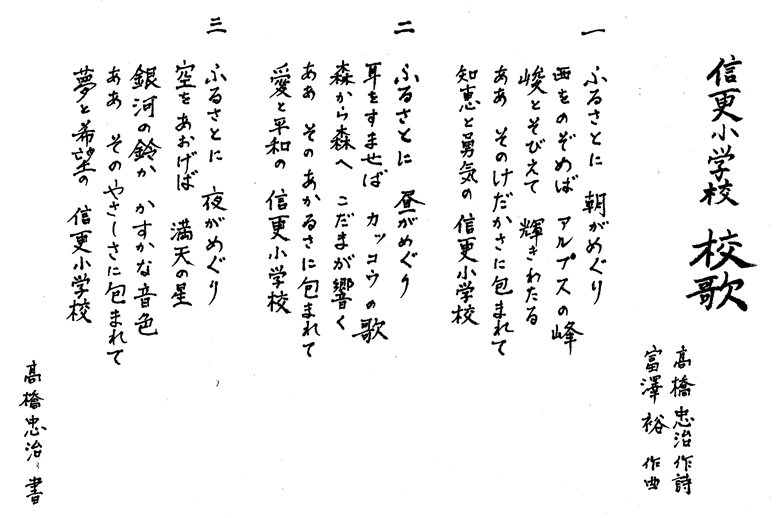 信更小学校 校歌
高橋忠治 作詩
富澤裕 作曲
一 ふるさとに 朝がめぐり
西をのぞめば アルプスの峰
峻とそびえて 輝きわたる
ああ そのけだかさに包まれて
知恵と勇気の 信更小学校
二 ふるさとに 昼がめぐり
耳をすませば カッコウの歌
森から森へ こだまが響く
ああ そのあかるさに包まれて
愛と平和の 信更小学校
三 ふるさとに 夜がめぐり
空をあおげば 満天の星
銀河の鈴か かすかな音色
ああ そのやさしさに包まれて
夢と希望の 信更小学校
高橋忠治 書